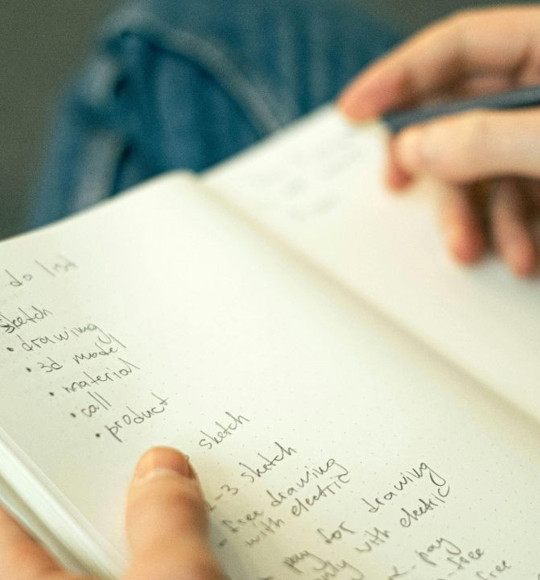 do list
sketch
• drawing
• 3d model
• material
• call
• product
sketch
-3 sketch
- free drawing
with electric
pay for drawing
only with electric
pay
free